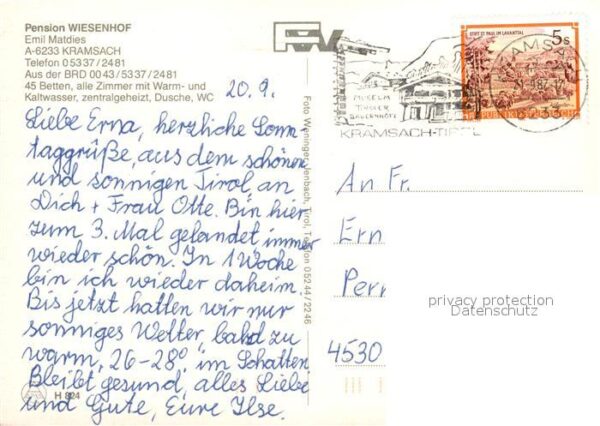 Pension WIESENHOF
Emil Matdies
A-6233 KRAMSACH
Telefon 0 53 37 / 24 81
Aus der BRD 00 43 / 53 37 / 24 81
45 Betten, alle Zimmer mit Warm- und
Kaltwasser, zentralgeheizt, Dusche, WC
20.9.
Liebe Erna, herzliche Sonn
taggrüße, aus dem schönen
und sonnigen Tirol, an
Dich + Frau Otte. Bin hier
zum 3. Mal gelandet immer
wieder schön. In 1 Woche
bin ich wieder daheim.
Bis jetzt hatten wir nur
sonniges Wetter, bald zu
warm, 26-28° im Schatten
Bleibt gesund, alles Liebe
und Gute, Eure Ilse.
H 824
Foto Weninger, Jenbach, Tirol, Telefon 05244/2246
MUSEUM
TIROLER
BAUERNHÖFE
KRAMSACH-TIROL
STIFT ST. PAUL IM LAVANTTAL
5s
REPUBLIK ÖSTERREICH
An Fr.
Ern
Perr
privacy protection
Datenschutz
4530